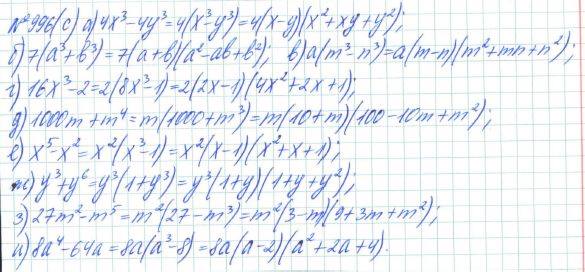 №996(с) а) 4x³-4y³=4(x³-y³)=4(x-y)(x²+xy+y²);
б) 7(a³+b³)=7(a+b)(a²-ab+b²); в) a(m³-n³)=a(m-n)(m²+mn+n²);
г) 16x³-2=2(8x³-1)=2(2x-1)(4x²+2x+1);
д) 1000m+m⁴=m(1000+m³)=m(10+m)(100-10m+m²);
е) x⁵-x²=x²(x³-1)=x²(x-1)(x²+x+1);
ж) y³+y⁶=y³(1+y³)=y³(1+y)(1+y+y²);
з) 27m²-m⁵=m²(27-m³)=m²(3-m)(9+3m+m²);
и) 8a⁴-64a=8a(a³-8)=8a(a-2)(a²+2a+4).